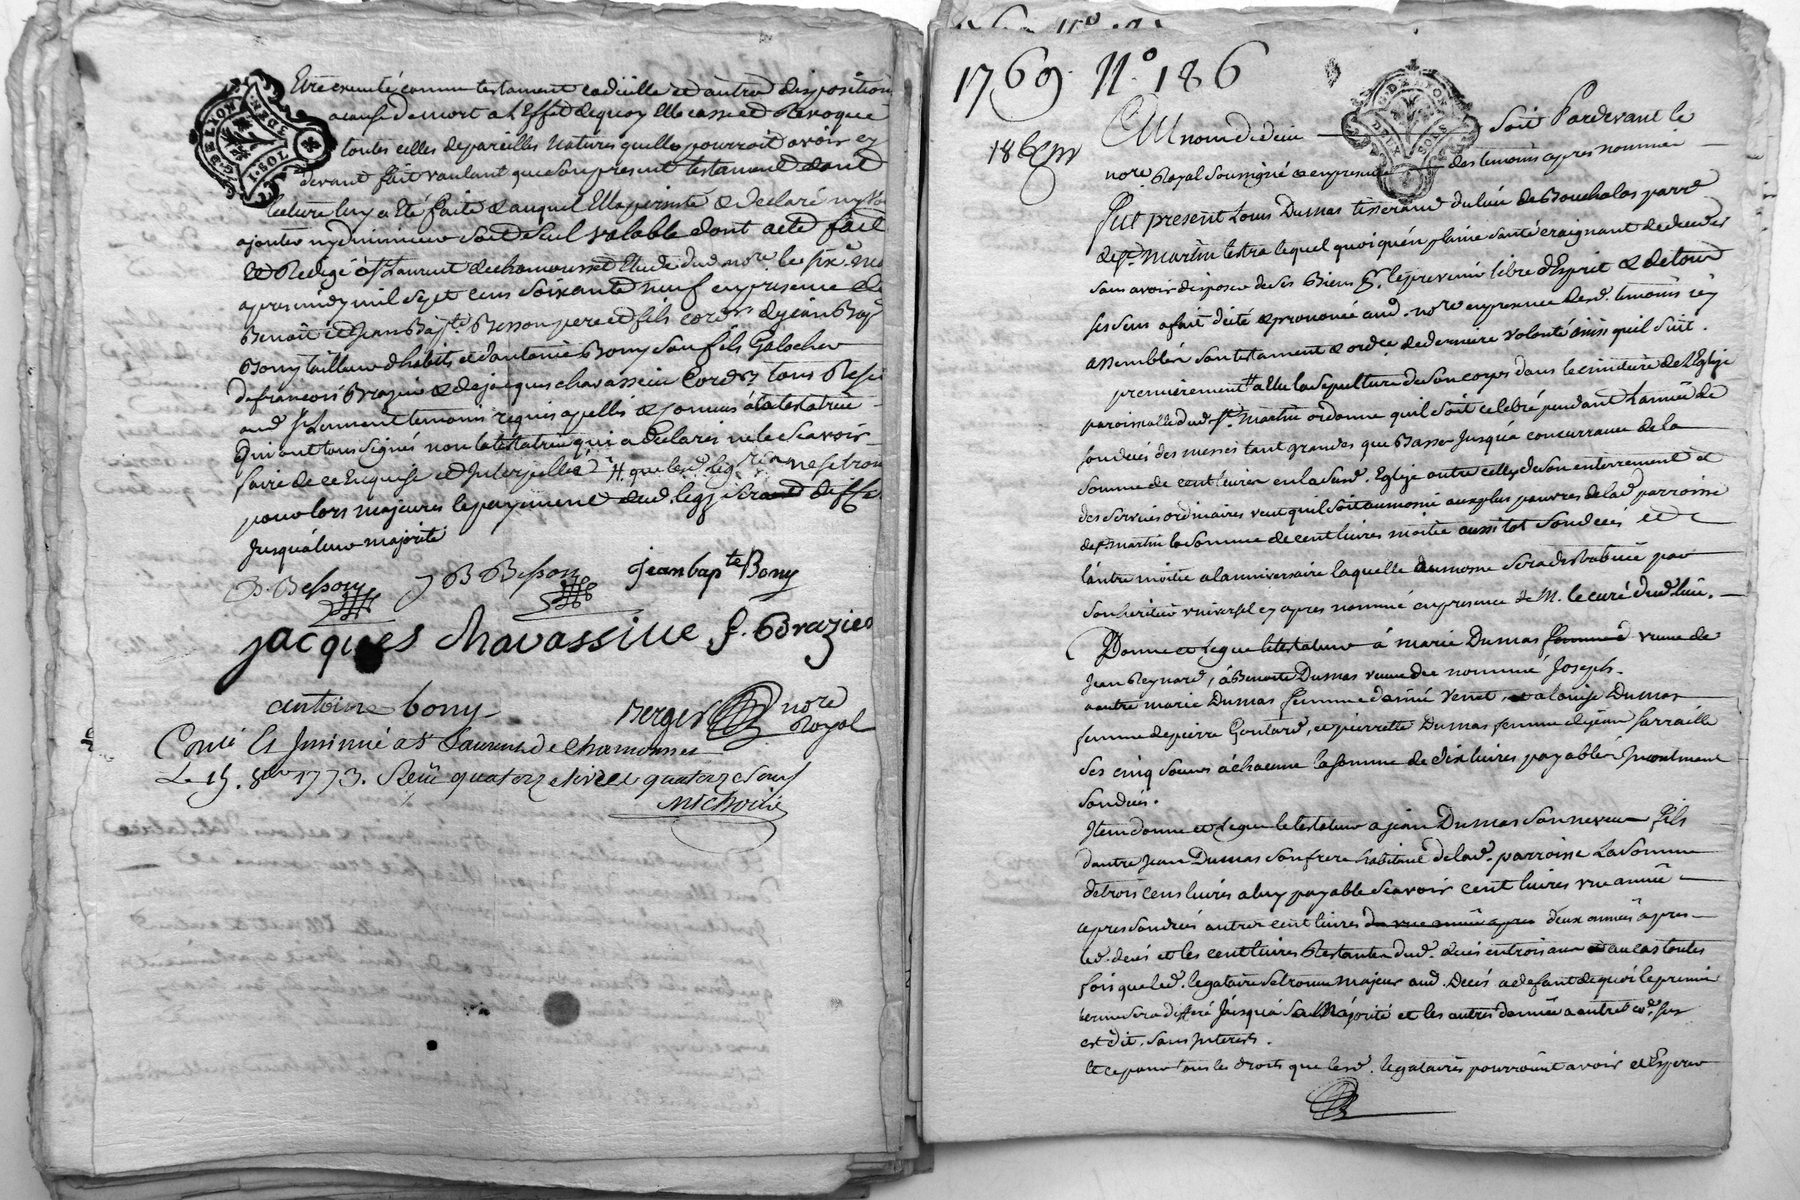 Etre executé comme testament codicille et autre disposition
a cause de mort a l'Effet de quoy Elle casse et Revoque
toutes celles de pareilles Natures quelle pourroit avoir cy
devant fait voulant que son present testament dont
lecture luy a Eté faite et auquel Elle persiste & declaré ny
ajouter ny diminuer soit seul valable dont acte fait
et Redigé a St Laurent de chamousset Etude dud nore. le six
apres midy mil sept cens soixante neuf en presence de
Benoit et Jean Bapte. Besson pere et fils cordrs. de jean Bapt
Bony tailleur d'habits et d'antoine Bony son fils Galocher
de francois Brazier & de jacques chavassieu Cordrs. tous Resi
aud St Laurent temoins requis apellés & connus de la testatrice
qui ont tous signés non la testatrice qui a declaré ne le scavoir
faire de ce Enquise et Interpellée H. que lesd. leg ne se trou
pour lors majeures le payement dud. legs sera diffe
jusqua leur majorité
B. Besson J B Besson jean bapte Bony
jacques chavassiue f. Brazier
antoine bony Berger nore
Royal
Conlé Et Insinué a St Laurent de Chamousset
Le 15. 8bre 1773. Reçu quatorze livres quatorze sous
Michoud
G. DE LYON
1. SOL
3 DEN
1769. N.° 186
186
Au nom de dieu soit Pardevant le
nore. Royal soussigné & en presence des temoins apres nommés
fut present Louis Dumas tisserand du lieu de Bouchalas parre.
de St. Martin lestra lequel quoi qu'en plaine santé craignant de deceder
sans avoir disposé de ses Biens Et le prevenir libre d'Esprit & de tous
ses sens a fait dicté & prononcé aud. nore en presence desd. temoins
assemblés son testament & ordce. de derniere volonté ainsi quil suit.
premierement Elu la sepulture de son corps dans le cimetiere de l'Eglise
paroissialle dud St. Martin ordonne qu'il soit celebré pendant l'année de
son decés des messes tant grandes que Basses jusqu'a concurrance de la
somme de cent livres en lasusd. Eglise outre celles de son enterrement et
des services ordinaires veut qu'il soit aumoné aux plus pauvres de lad. parroisse
de St martin la somme de cent livres moitié aussitot son deces et
l'autre moitié a l'anniversaire laquelle aumosne sera distribuée par
son heritier universel cy apres nommé en presence de M. le curé dud. lieu.
Donne et Legue le testateur á marie Dumas femme veuve de
Jean Reynard, a Benoite Dumas veuve de nommé Joseph.
a autre marie Dumas femme d'aimé Verret, et a louise Dumas
femme de pierre Goutard, et pierrette Dumas femme de jean farraille
ses cinq soeurs á chacune la somme de dix livres payables incontinent
son decés.
Item donne et Legue le testateur a jean Dumas son neveu fils
d'autre Jean Dumas son frere habitant de lad. parroisse La somme
de trois cens livres a luy payable scavoir cent livres une année
apres son decés autres cent livres du une année apres deux années apres
led. decés et les cent livres Restantes dud. decés en trois ans et au cas toutes
fois que led. legataire se trouve majeur aud. Decés a defaut de quoi le premier
terme sera differé jusqu'á sa majorité et les autres d'année a autre cõe. sus
est dit, sans Interests.
Et ce pour tous les droits que lesd. legataires pourroient avoir et Esperer
G. DE LYON